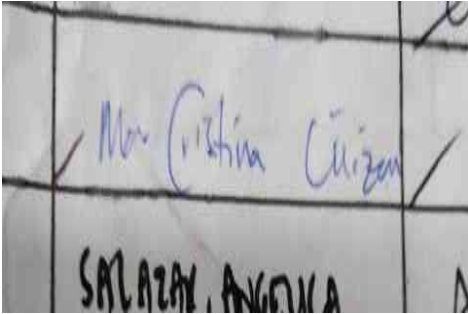 Ma. Cristina
SALAZAR, ANGELICA